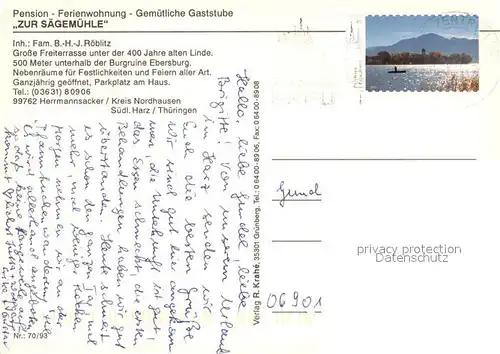 Pension - Ferienwohnung - Gemütliche Gaststube
„ZUR SÄGEMÜHLE“
Inh.: Fam. B.-H.-J. Röblitz
Große Freiterrasse unter der 400 Jahre alten Linde.
500 Meter unterhalb der Burgruine Ebersburg.
Nebenräume für Festlichkeiten und Feiern aller Art.
Ganzjährig geöffnet, Parkplatz am Haus.
Tel.: (03631) 80906
99762 Herrmannsacker / Kreis Nordhausen
Südl. Harz / Thüringen
Hallo, liebe Gundel, liebe
Brigitte! Von unserem Urlaub
im Harz senden wir
Euch die besten Grüße
Wir sind gut hier angekom
men, die Umgebung ist gut
das Essen schmeckt, die ersten
Behandlungen haben wir gut
überstanden. Heute schneit
es schon den ganzen Tag mal
mehr, mal weniger Flocken
Morgen nehmen wir an der
wanderung teil
Es wird allerhand angeboten
so daß keine Langeweile auf
kommt
Verlag R. Krahé, 35301 Grünberg, Tel.: 06400-8906, Fax: 06400-8908
Nr.: 70/93
Gund
06901
privacy protection
Datenschutz